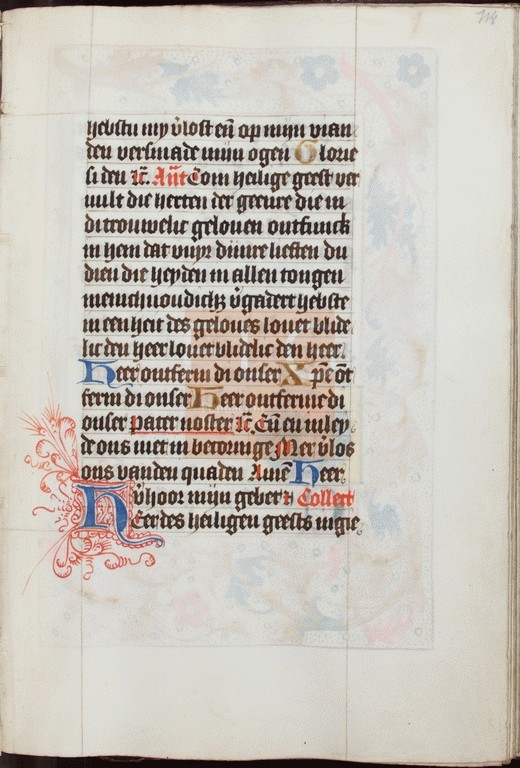 hebstu my v̓lost en̄ op mijn vian
den versmade mijn ogen Glorie
si den ꝛc̄. An̄t Com heilige geest ver
uult die herten der geenre die in
di trouwelic geloven ontfunck
in hem dat vuyr dijnre lieften du
dien die heyden in allen tongen
menichuoudich v̓gadert hebste
in een heit des geloues louet blide
lic den heer louet blidelic den heer.
Heer ontferm di onser Xp̄e ōt
ferm di onser Heer ontferme di
onser pater noster ꝛc̄. En̄ en inley
de ons niet in becoringe Mer v̓los
ons vanden quaden Amē Heer
v̓hoor mijn gebet ꝛ Collect
HEer des heiligen geests ingie